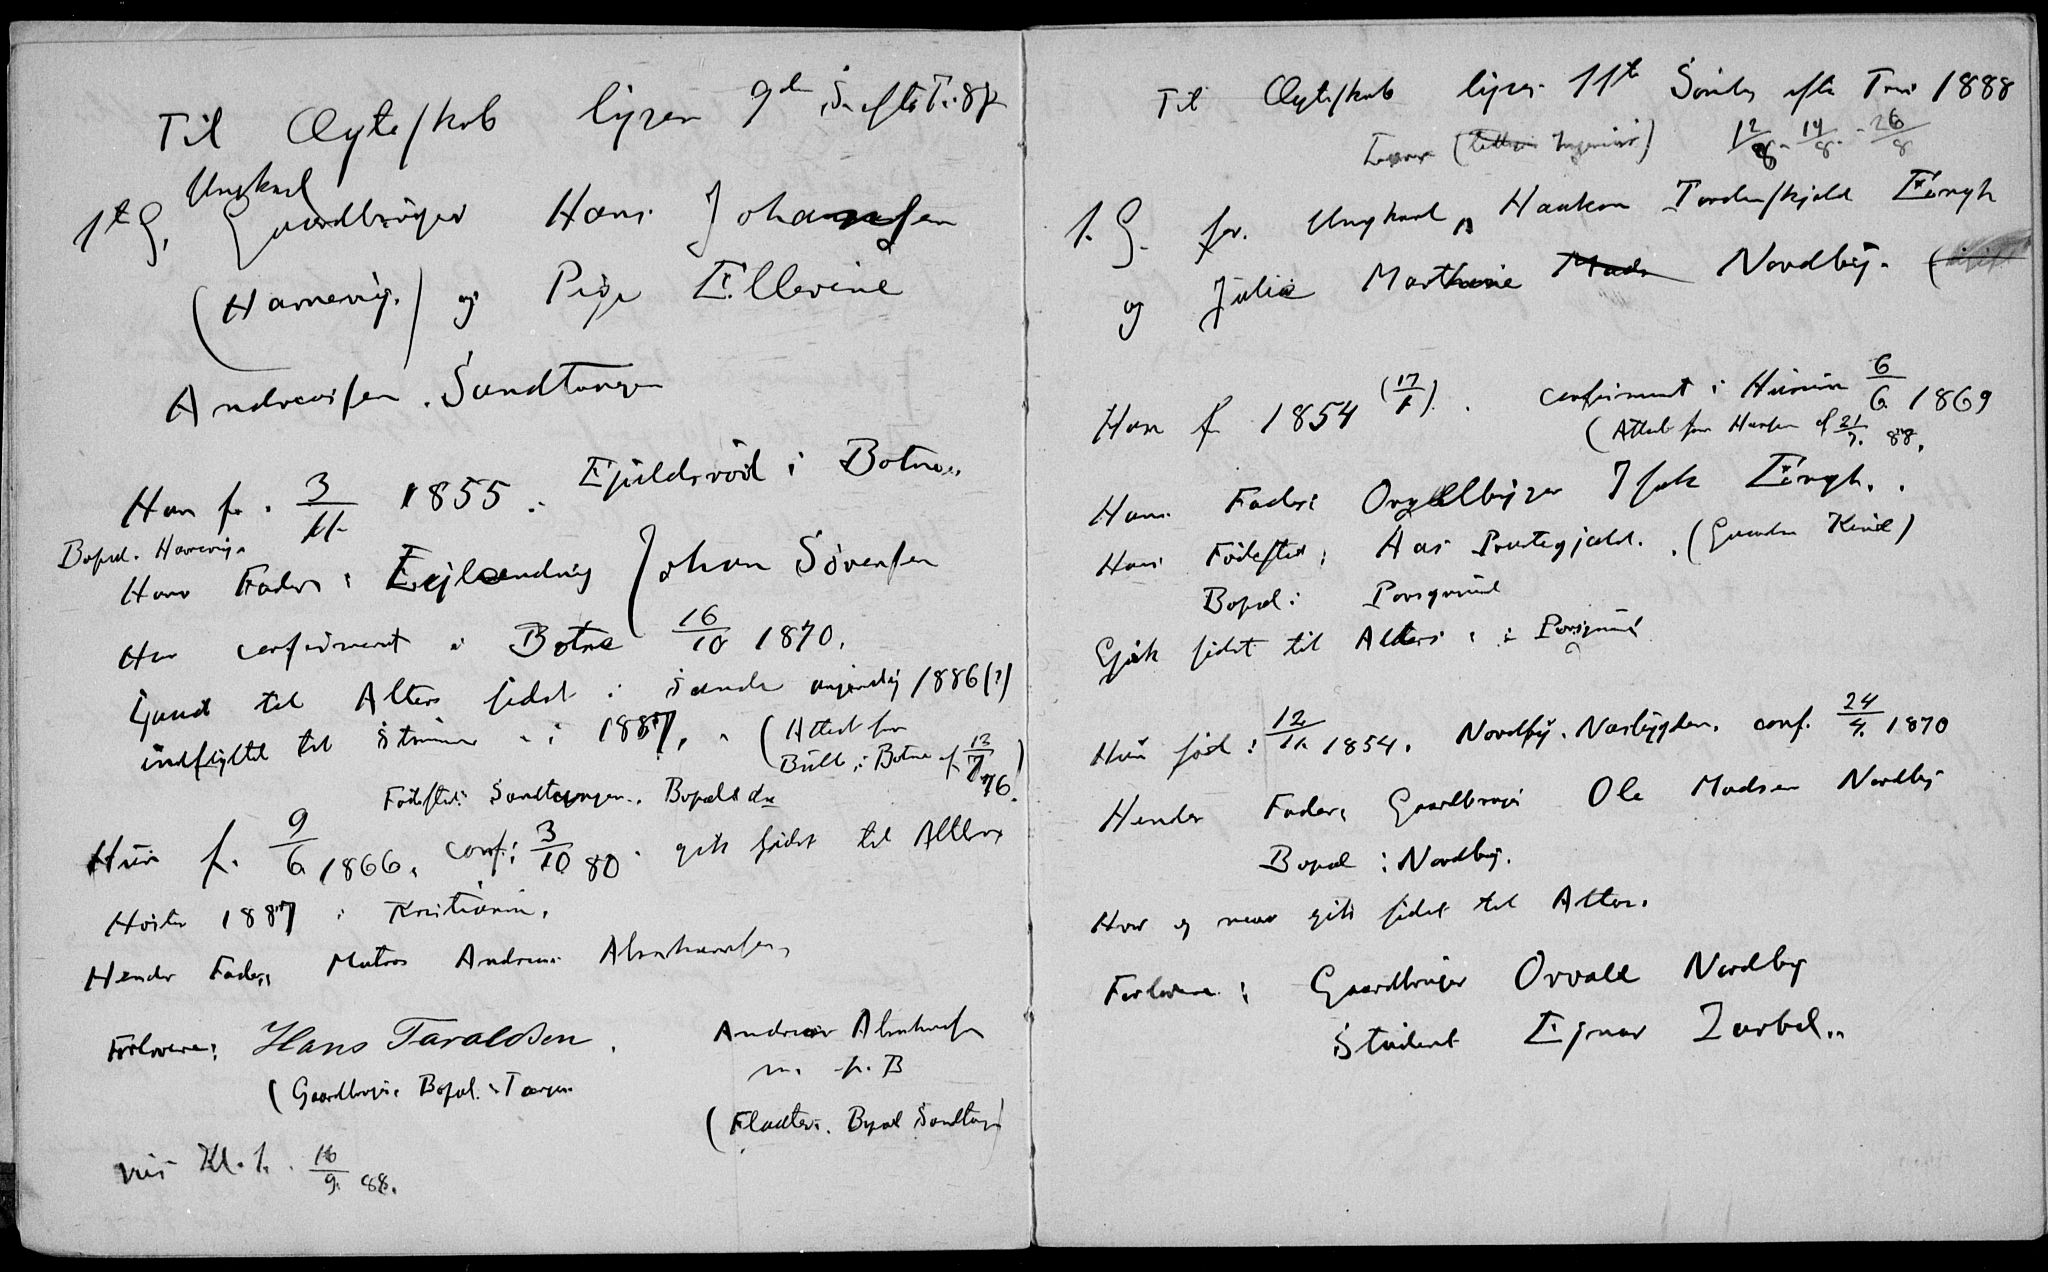 Til Ægteskab lyses 9de S. efter Tr. 88
Ungkarl
1ste G. Gaardbruger Hans Johansen
(Hanevig.) og Pige Ellevine
Andreasen. Sandtangen
Han f. 3/11. 1855. Ejildsröd i Botne.
Bopæl. Hanevig.
Hans Fader: Ejlænding Johan Sörensen
Han confirmeret i Botne 16/10 1870.
Gaaet til Alters sidst i Sande 1886(?)
indflyttet til Strömm i 1887. (Attest fra
Bull i Botne af 13/7 76.)
Födested: Sandtangen. Bopæl do
Hun f. 9/6 1866. conf: 3/10 80. gik sidst til Alters
Hösten 1887 i Kristiania.
Hendes Fader: Matros Andreas Abrahamsen
Forlovere: Hans Taraldsen. Andreas Abrahamsen
m. p. B
(Gaardbruger. Bopæl: Tangen
( Bopæl Sandtangen)
vies Kl. 1. 16/9. 88.
Til Ægteskab lyses 11te Söndag efter Trin 1888
( Ingeniör) 12/8. 19/8. 26/8
1. G. for Ungkarl, Haakon Tordenskjold Eüngh
og Julie Marthine Mads Nordby.
Han f. 1854 (17/1). confirmeret i Hurum 6/6 1869
(Attest fra Hansen af 21/7. 88.
Hans Fader: Orgelbygger Isak Eüngh.
Hans Födested: Aas Præstegjæld. (Kind)
Bopæl: Porsgrund
Gik sidst til Alters: i Porsgrund
Hun född: 12/11. 1854. Nordby. Næsbygden. conf. 24/4. 1870
Hendes Fader: Gaardbruger Ole Madsen Nordby
Bopæl: Nordby.
Hvor og naar gik sidst til Alters.
Forlovere: Gaardbruger Orvald Nordby
Student Ejnar